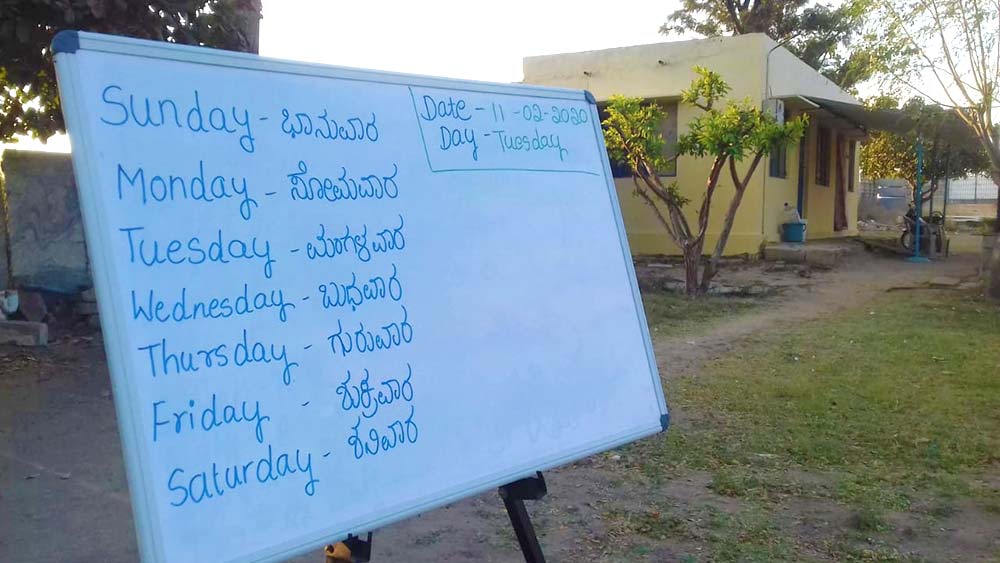 Sunday - ಭಾನುವಾರ
Monday - ಸೋಮವಾರ
Tuesday - ಮಂಗಳವಾರ
Wednesday - ಬುಧವಾರ
Thursday - ಗುರುವಾರ
Friday - ಶುಕ್ರವಾರ
Saturday - ಶನಿವಾರ
Date - 11-02-2020
Day - Tuesday